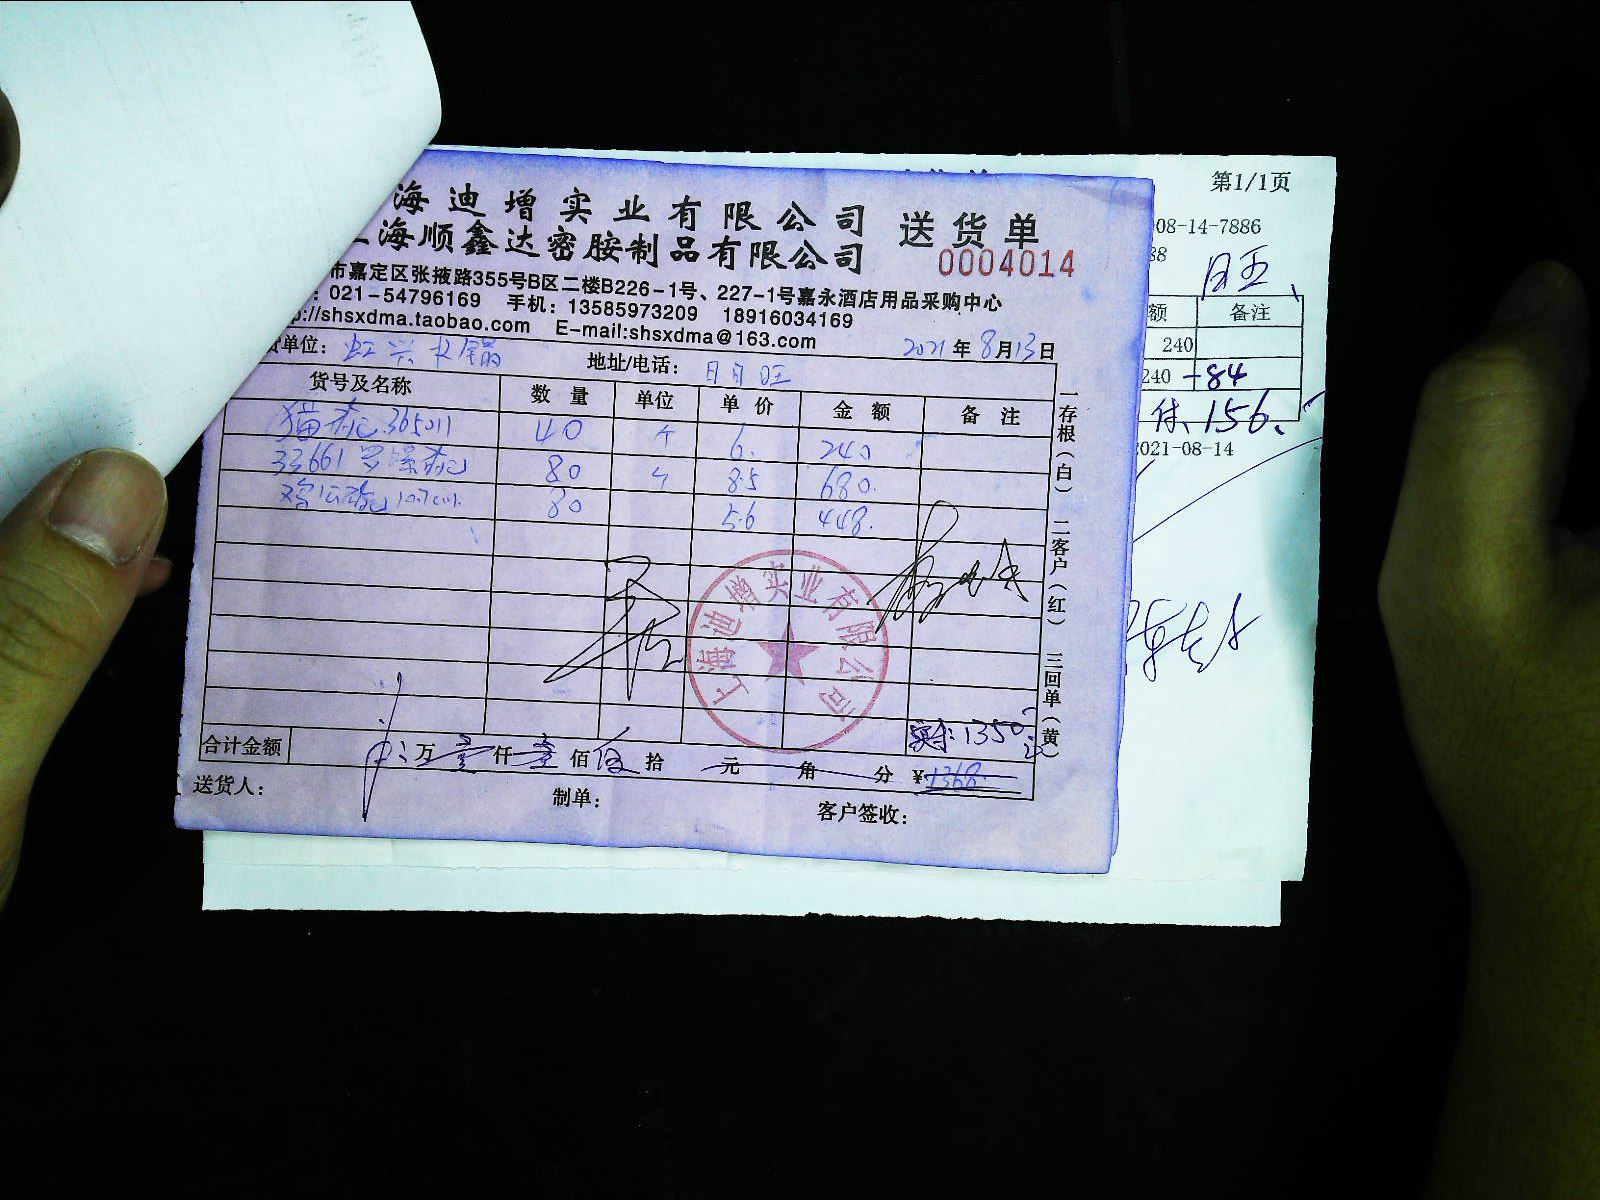 海迪增实业有限公司 送货单
海顺鑫达密胺制品有限公司
0004014
市嘉定区张掖路355号B区二楼B226-1号、227-1号嘉永酒店用品采购中心
:021-54796169 手机:13585973209 18916034169
://shsxdma.taobao.com E-mail:shsxdma@163.com
单位: 地址/电话: 日月旺 2021年8月13日
货号及名称 数量 单位 单价 金额 备注
365011 40 个 6. 240
33661 80 个 8.5 680.
10.7cm 80 5.6 448.
实余:1350
合计金额 万壹仟 佰伍拾 元 角 分 ¥1368
送货人: 制单: 客户签收:
一存根(白) 二客户(红) 三回单(黄)
上海迪增实业有限公司
第1/1页
08-14-7886
88
日旺
额 备注
240
240 -84
付.156.
021-08-14